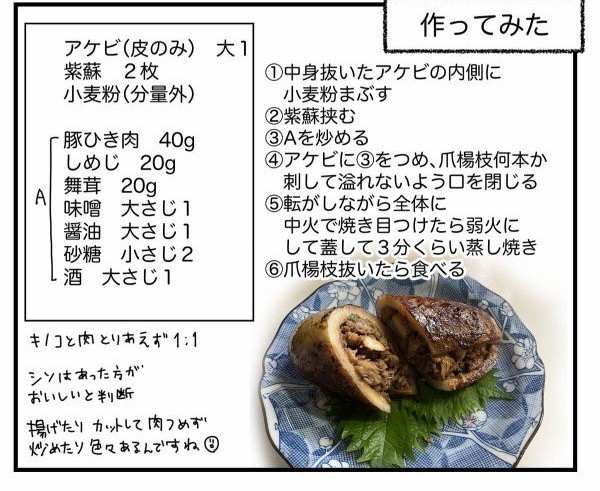 作ってみた
アケビ(皮のみ) 大1
紫蘇 2枚
小麦粉(分量外)
A
豚ひき肉 40g
しめじ 20g
舞茸 20g
味噌 大さじ1
醤油 大さじ1
砂糖 小さじ2
酒 大さじ1
①中身抜いたアケビの内側に
小麦粉まぶす
②紫蘇挟む
③Aを炒める
④アケビに③をつめ、爪楊枝何本か
刺して溢れないよう口を閉じる
⑤転がしながら全体に
中火で焼き目つけたら弱火に
して蓋して3分くらい蒸し焼き
⑥爪楊枝抜いたら食べる
キノコと肉とりあえず1:1
シソはあった方が
おいしいと判断
揚げたり カットして肉つめず
炒めたり色々あるんですね